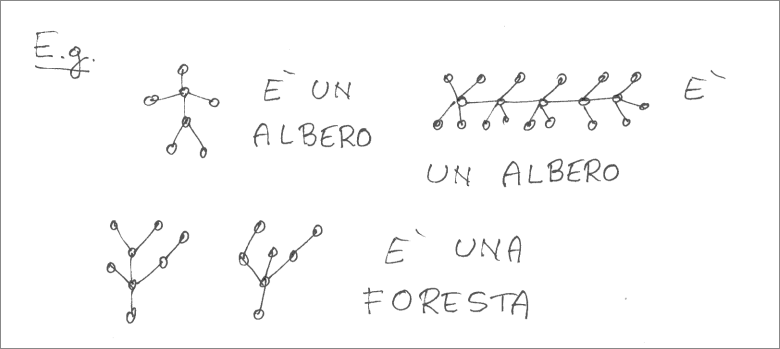 E.g.
E` UN
ALBERO
E`
UN ALBERO
E` UNA
FORESTA